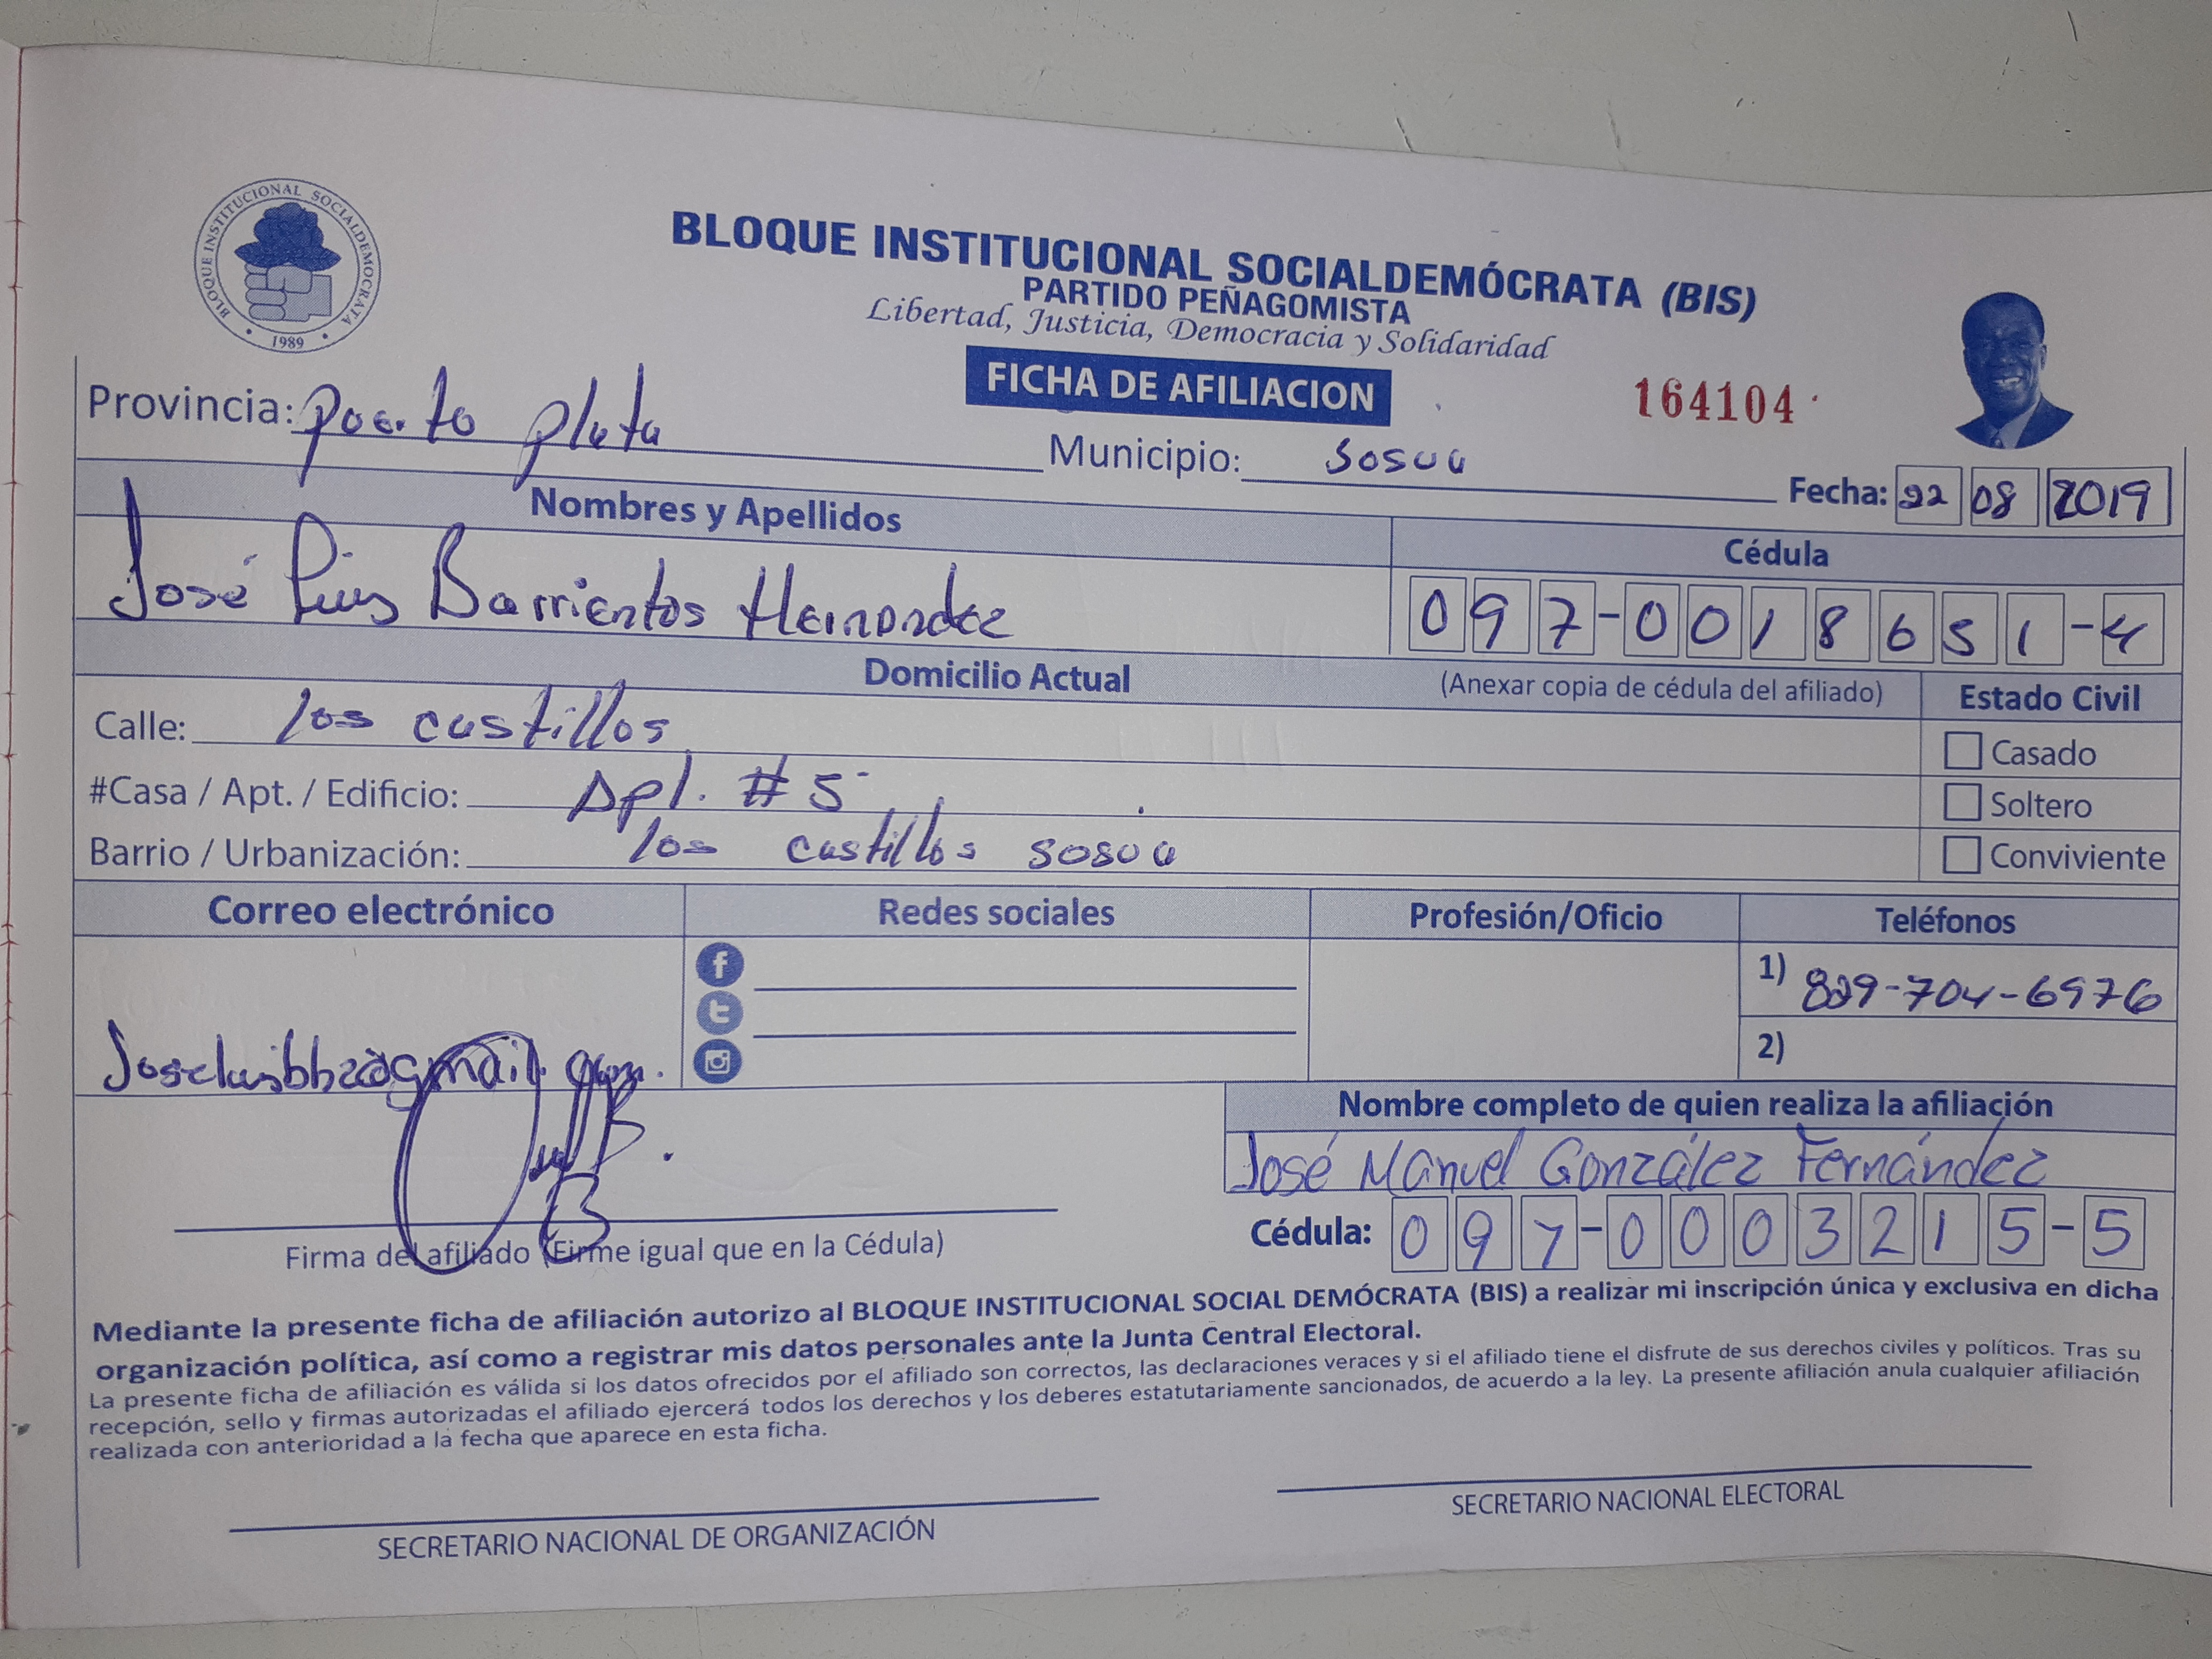 BLOQUE INSTITUCIONAL SOCIALDEMOCRATA
1989
BLOQUE INSTITUCIONAL SOCIALDEMÓCRATA (BIS)
PARTIDO PEÑAGOMISTA
Libertad, Justicia, Democracia y Solidaridad
FICHA DE AFILIACION
164104
Provincia: puerto plata
Municipio: sosua
Fecha: 22 08 2019
Nombres y Apellidos
Cédula
José Luis Barrientos Hernandez
097-0018651-4
Domicilio Actual
(Anexar copia de cédula del afiliado)
Estado Civil
Calle: los castillos
Casado
#Casa / Apt. / Edificio: Apt. #5
Soltero
Barrio / Urbanización: los castillos sosua
Conviviente
Correo electrónico
Redes sociales
Profesión/Oficio
Teléfonos
1) 829-704-6976
2)
Nombre completo de quien realiza la afiliación
José Manuel González Fernández
Cédula: 097-0003215-5
Firma del afiliado (Firme igual que en la Cédula)
Mediante la presente ficha de afiliación autorizo al BLOQUE INSTITUCIONAL SOCIAL DEMÓCRATA (BIS) a realizar mi inscripción única y exclusiva en dicha
organización política, así como a registrar mis datos personales ante la Junta Central Electoral.
La presente ficha de afiliación es válida si los datos ofrecidos por el afiliado son correctos, las declaraciones veraces y si el afiliado tiene el disfrute de sus derechos civiles y políticos. Tras su
recepción, sello y firmas autorizadas el afiliado ejercerá todos los derechos y los deberes estatutariamente sancionados, de acuerdo a la ley. La presente afiliación anula cualquier afiliación
realizada con anterioridad a la fecha que aparece en esta ficha.
SECRETARIO NACIONAL DE ORGANIZACIÓN
SECRETARIO NACIONAL ELECTORAL